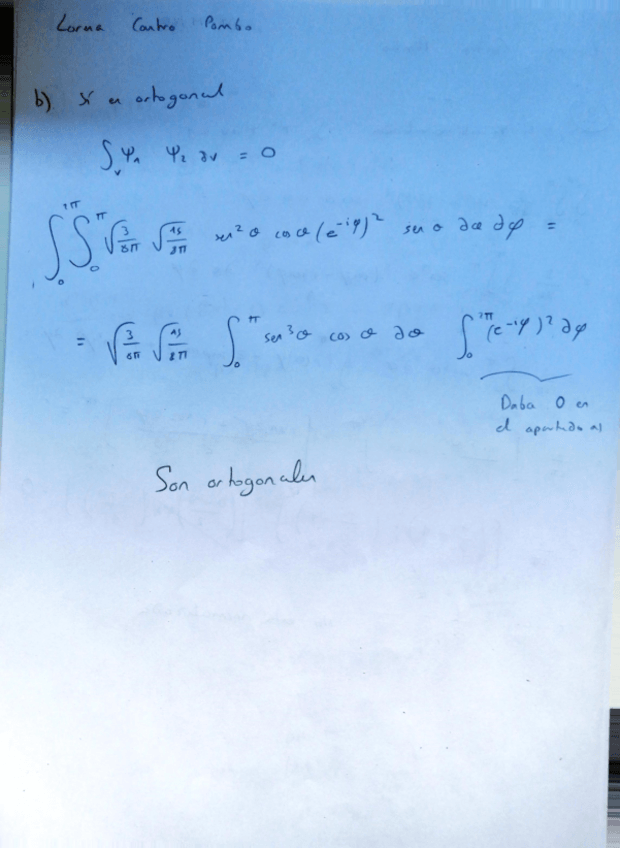 Lorena Castro Pombo
b) Sí es ortogonal
∫_v Ψ₁ Ψ₂ ∂v = 0
∫₀^{2π} ∫₀^π √(3/8π) √(15/8π) sen²θ cos θ (e^{-iφ})² sen θ ∂θ ∂φ =
= √(3/8π) √(15/8π) ∫₀^π sen³θ cos θ ∂θ ∫₀^{2π} (e^{-iφ})² ∂φ
Daba 0 en
el apartado a)
Son ortogonales